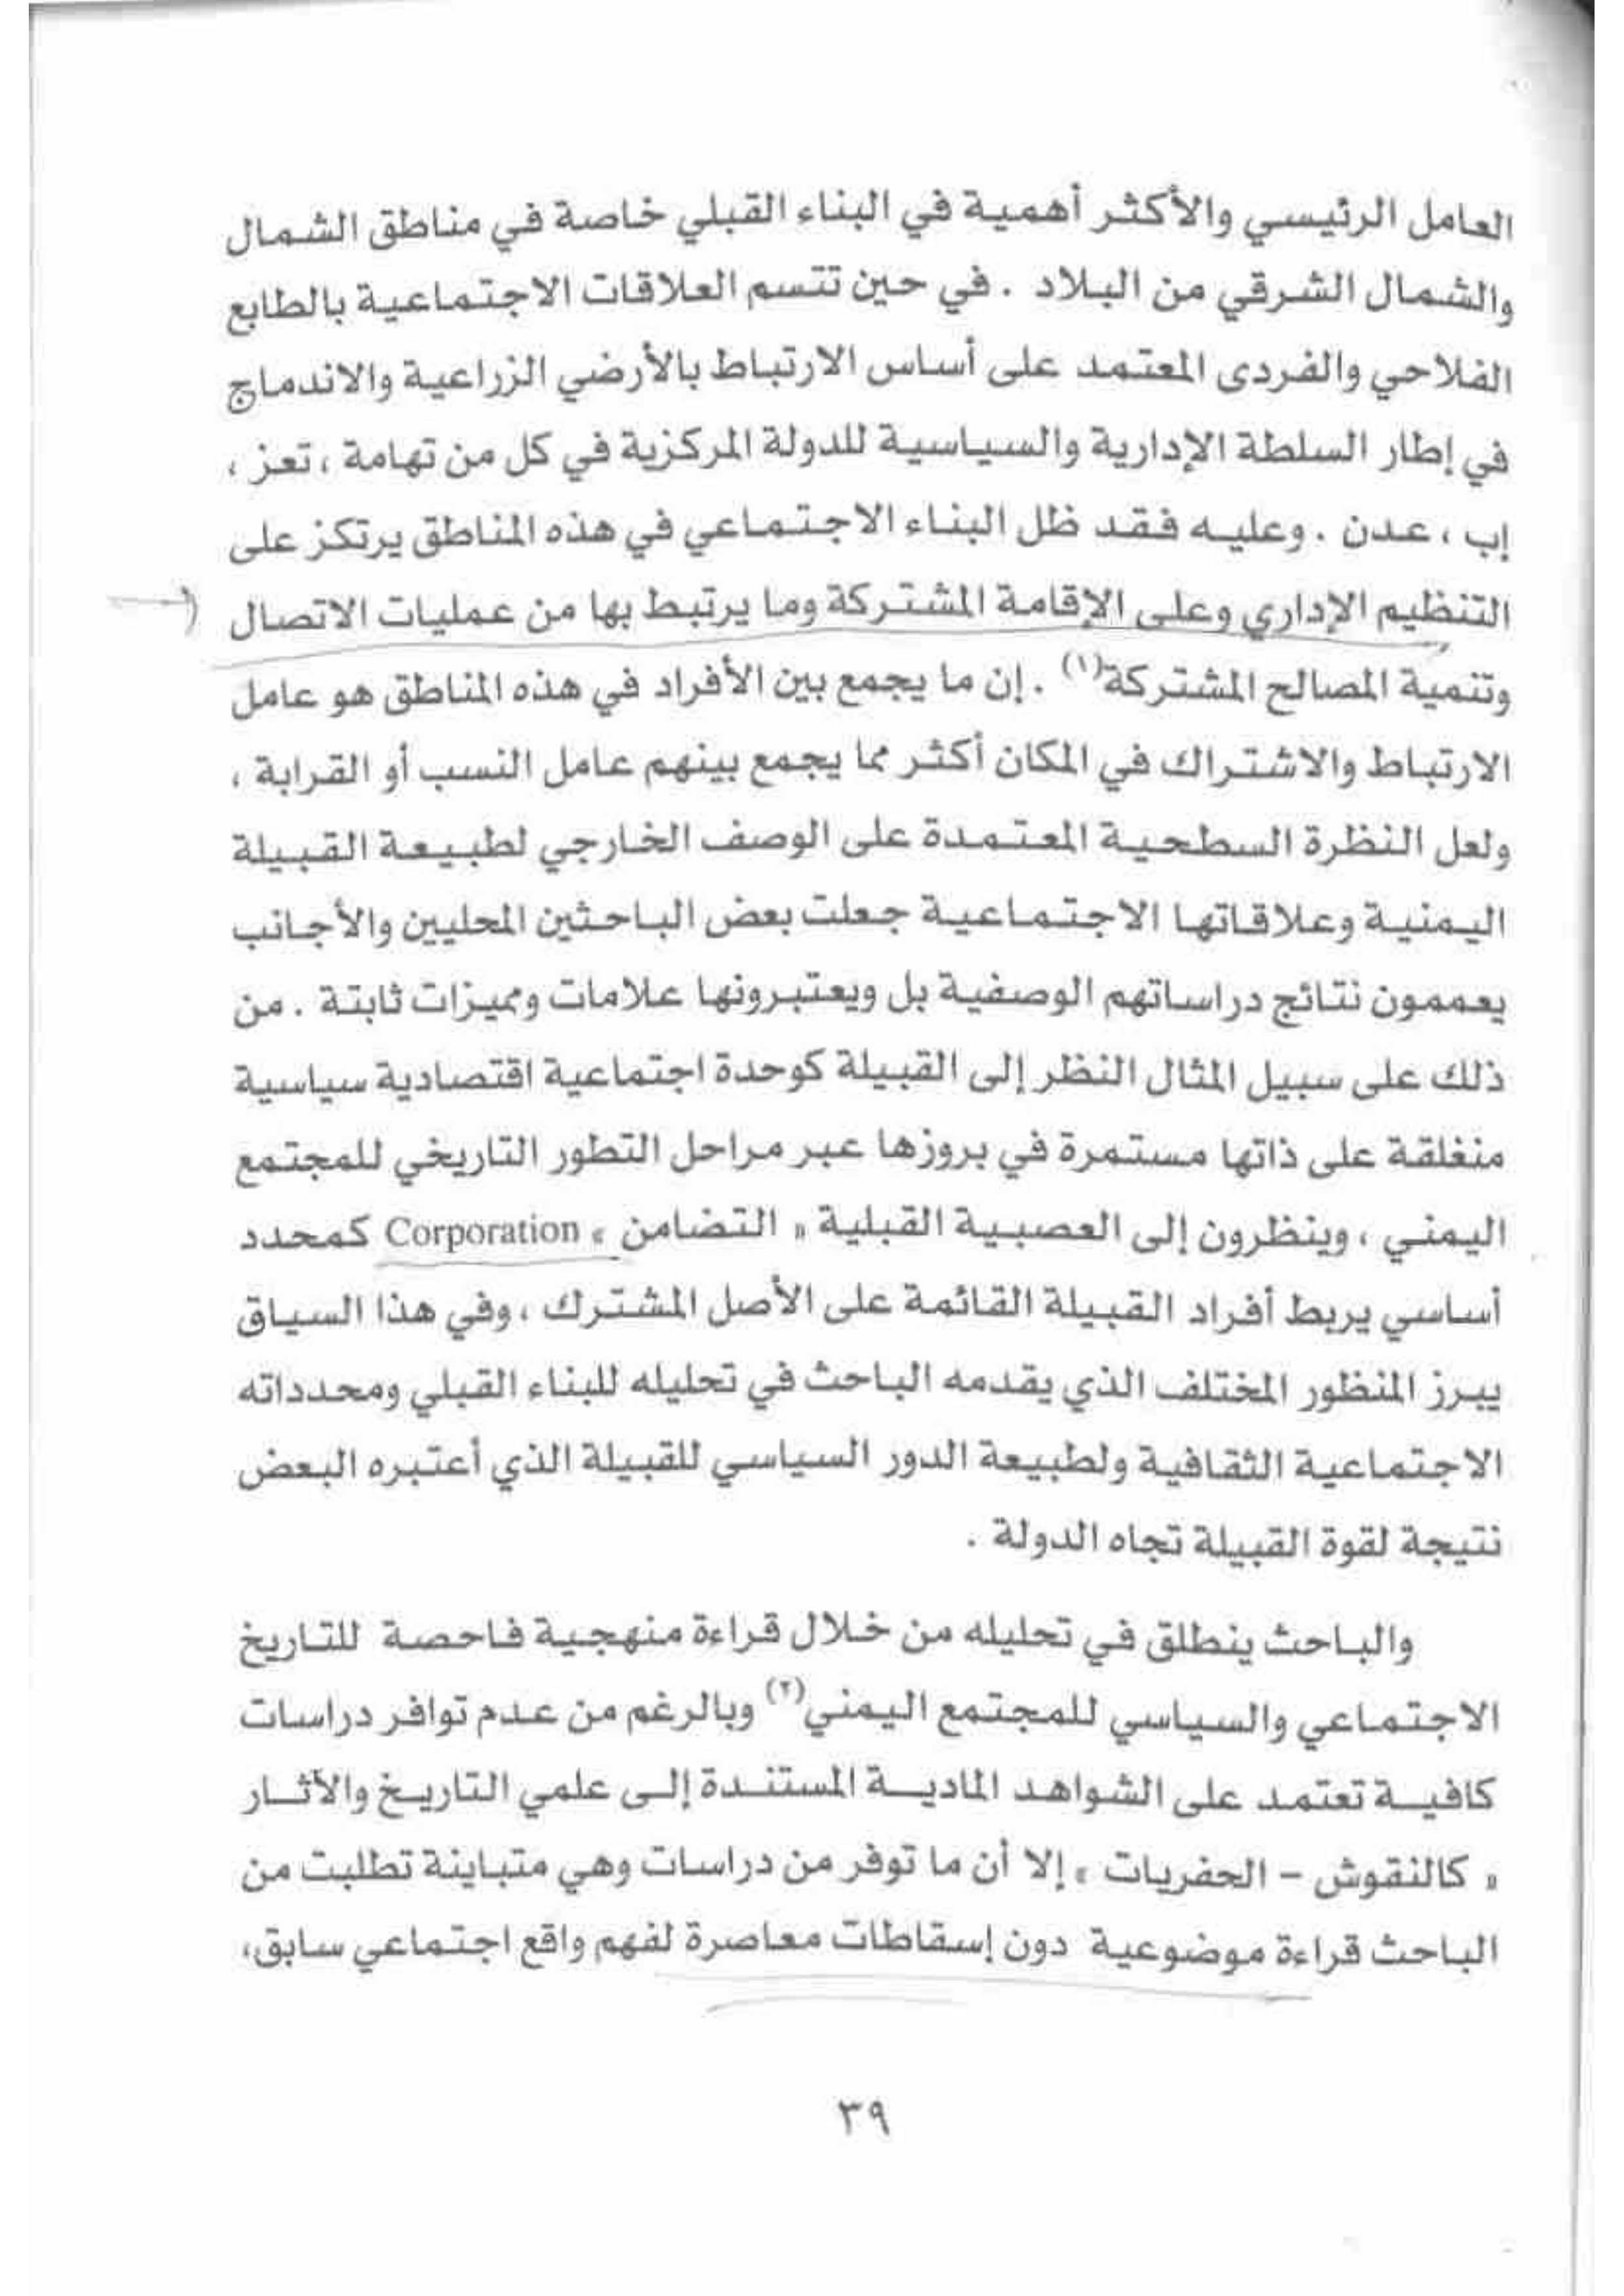 العامل الرئيسي والأكثر أهمية في البناء القبلي خاصة في مناطق الشمال
والشمال الشرقي من البلاد . في حين تتسم العلاقات الاجتماعية بالطابع
الفلاحي والفردى المعتمد على أساس الارتباط بالأرضي الزراعية والاندماج
في إطار السلطة الإدارية والسياسية للدولة المركزية في كل من تهامة ، تعز ،
إب ، عدن . وعليه فقد ظل البناء الاجتماعي في هذه المناطق يرتكز على
التنظيم الإداري وعلى الإقامة المشتركة وما يرتبط بها من عمليات الاتصال
وتنمية المصالح المشتركة(١) . إن ما يجمع بين الأفراد في هذه المناطق هو عامل
الارتباط والاشتراك في المكان أكثر مما يجمع بينهم عامل النسب أو القرابة ،
ولعل النظرة السطحية المعتمدة على الوصف الخارجي لطبيعة القبيلة
اليمنية وعلاقاتها الاجتماعية جعلت بعض الباحثين المحليين والأجانب
يعممون نتائج دراساتهم الوصفية بل ويعتبرونها علامات ومميزات ثابتة . من
ذلك على سبيل المثال النظر إلى القبيلة كوحدة اجتماعية اقتصادية سياسية
منغلقة على ذاتها مستمرة في بروزها عبر مراحل التطور التاريخي للمجتمع
اليمني ، وينظرون إلى العصبية القبلية « التضامن » Corporation كمحدد
أساسي يربط أفراد القبيلة القائمة على الأصل المشترك ، وفي هذا السياق
يبرز المنظور المختلف الذي يقدمه الباحث في تحليله للبناء القبلي ومحدداته
الاجتماعية الثقافية ولطبيعة الدور السياسي للقبيلة الذي أعتبره البعض
نتيجة لقوة القبيلة تجاه الدولة .
والباحث ينطلق في تحليله من خلال قراءة منهجية فاحصة للتاريخ
الاجتماعي والسياسي للمجتمع اليمني(٢) وبالرغم من عدم توافر دراسات
كافية تعتمد على الشواهد المادية المستندة إلى علمي التاريخ والآثار
« كالنقوش – الحفريات » إلا أن ما توفر من دراسات وهي متباينة تطلبت من
الباحث قراءة موضوعية دون إسقاطات معاصرة لفهم واقع اجتماعي سابق،
٣٩